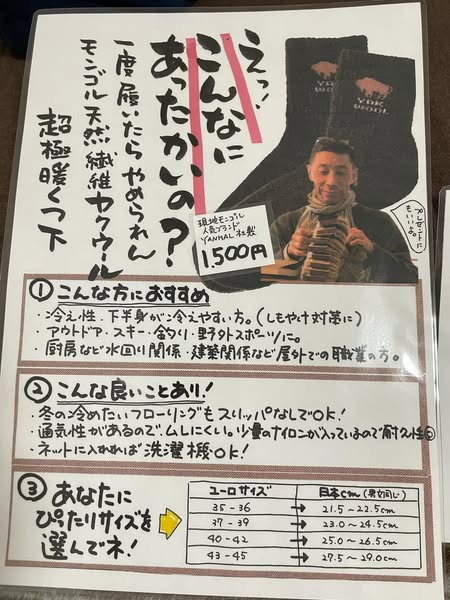 えっ!
こんなに
あったかいの?
一度履いたらやめられん
モンゴル天然繊維ヤクウール
超極暖くつ下
YAK
WOOL
YAK
WOOL
現地モンゴル
人気ブランド
YANMAL社製
1,500円
プレゼントに
もいいよ。
① こんな方におすすめ
・冷え性、下半身が冷えやすい方。(しもやけ対策に)
・アウトドア・スキー・釣り・野外スポーツに。
・厨房など水回り関係・建築関係など屋外での職業の方。
② こんな良いことあり!
・冬の冷めたいフローリングもスリッパなしでOK!
・通気性があるので、ムレにくい。少量のナイロンが入っているので耐久性◎
・ネットに入れれば洗濯機OK!
③ あなたに
ぴったりサイズを
選んでネ!
ユーロサイズ 日本cm(男女同じ)
35-36 → 21.5~22.5cm
37-39 → 23.0~24.5cm
40-42 → 25.0~26.5cm
43-45 → 27.5~29.0cm